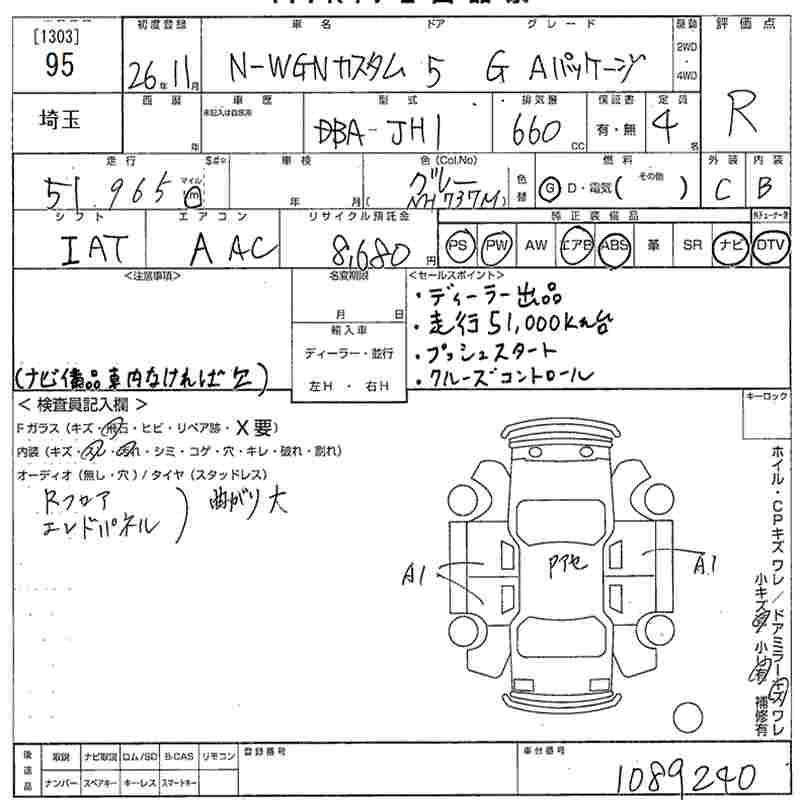 [1303]
95
初度登録
車名
ドア
グレード
駆動
評価点
26年11月
N-WGNカスタム 5 G Aパッケージ
2WD
4WD
R
埼玉
西暦
年
車歴
未記入は自家用
型式
DBA-JH1
排気量
660 CC
保証書
有・無
定員
4名
走行
51,965
マイル
km
車検
年 月
色(Col,No)
グレー
(NH737M)
色替
燃料
G D・電気( その他 )
外装
C
内装
B
シフト
IAT
エアコン
AAC
リサイクル預託金
8,680円
純正装備品
PS PW AW エアB ABS 革 SR ナビ DTV
<注意事項>
(ナビ備品車内なければ欠)
名変期限
月 日
輸入車
ディーラー・並行
左H ・ 右H
<セールスポイント>
・ディーラー出品
・走行51,000Km台
・プッシュスタート
・クルーズコントロール
キーロック
<検査員記入欄>
Fガラス(キズ・飛石・ヒビ・リペア跡・X要)
内装(キズ・スレ・汚れ・シミ・コゲ・穴・キレ・破れ・割れ)
オーディオ(無し・穴)/タイヤ(スタッドレス)
Rフロア
エンドパネル
曲がり大
A1
Pアセ
A1
ホイル・CPキズ ワレ/ドアミラーキズ ワレ
補修有
後送品
取説 ナビ取説 ロム/SD B-CAS リモコン
ナンバー スペアキー キーレス スマートキー
登録番号
車台番号
1089240